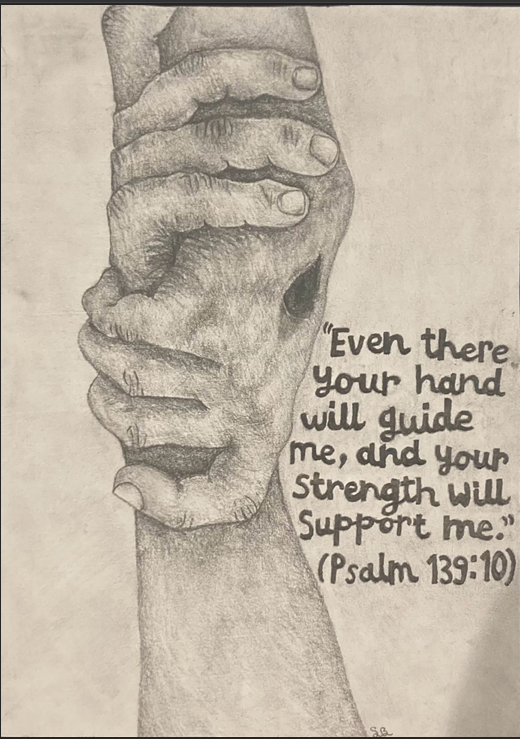 "Even there
your hand
will guide
me, and your
strength will
Support me."
(Psalm 139:10)